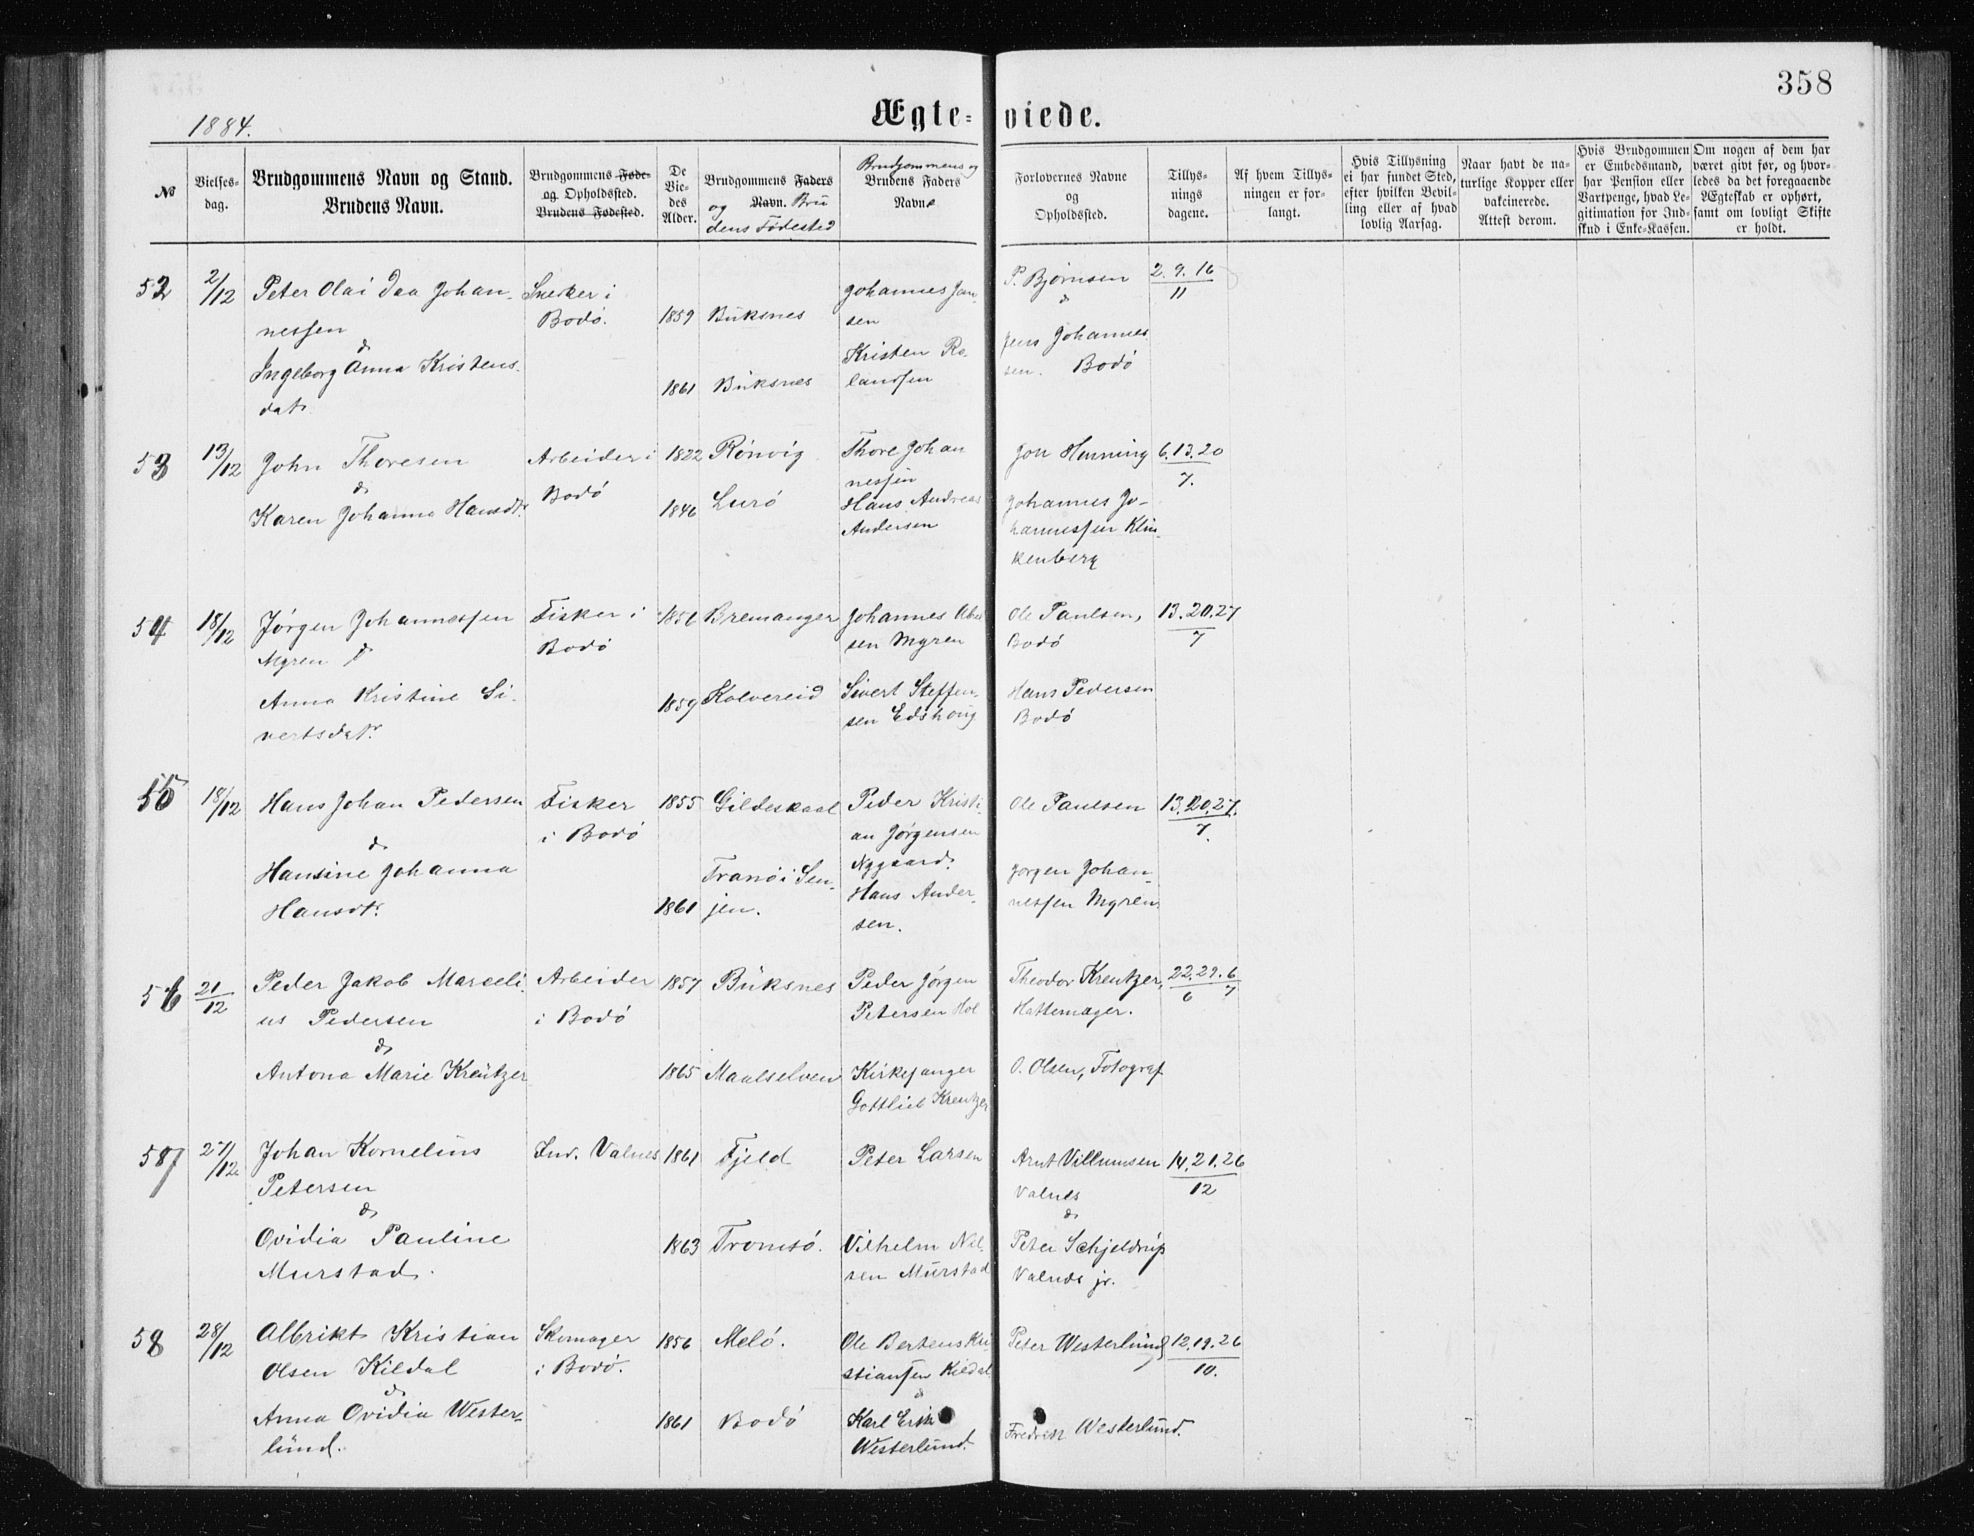 358
1884.
Ægte-viede.
No
Vielses-
dag.
Brudgommens Navn og Stand.
Brudens Navn.
Brudgommens Føde-
og Opholdssted.
Brudens Fødested.
De
Vie-
des
Alder.
Brudgommens Faders
og Navn. Bru
dens Fødested
Brudgommens og
Brudens Faders
Navne
Forlovernes Navne
og
Opholdssted.
Tillys-
nings
dagene.
Af hvem Tillys-
ningen er for-
langt.
Hvis Tillysning
ei har fundet Sted,
efter hvilken Bevil-
ling eller af hvad
lovlig Aarsag.
Naar havt de na-
turlige Kopper eller
vakcinerede.
Attest derom.
Hvis Brudgommen
er Embedsmand,
har Pension eller
Vartpenge, hvad Le-
gitimation for Ind-
skud i Enke-Kassen.
Om nogen af dem har
været givt før, og hvor-
ledes da det foregaaende
Ægteskab er ophørt,
samt om lovligt Skifte
er holdt.
52
2/12
Peter Olai Daa Johan-
nessen
&
Ingeborg Anna Kristens-
datr
Snedker i
Bodö.
1859
Buksnes
1861
Buksnes
Johannes Jan-
sen
Kristen Ro-
landsen
P. Bjørnsen
&
Jens Johannes
sen. Bodö
2. 9. 16
11
53
13/12
John Thoresen
&
Karen Johanna Hansdtr
Arbeider i
Bodö
1822
Rönvig
1846
Lurö
Thore Johan
nessen
Hans Andreas
Andersen
Jon Henning
Johannes Jo-
hannessen Klin-
kenberg
6. 13. 20
7.
54
18/12
Jørgen Johannessen
Myren &
Anna Kristine Si-
vertsdatr.
Fisker i
Bodö
1856
Bremanger
1859
Kolvereid
Johannes
sen Myren
Sivert Steffen-
sen Edshoug
Ole Paulsen,
Bodö
Hans Pedersen
Bodö
13. 20. 27
7
55
18/12
Hans Johan Pedersen
&
Hansine Johanna
Hansdtr.
Fisker
i Bodö
1855
Gildeskaal
1861
Tranö i Sen-
jen.
Peder Kristi-
an Jørgensen
Nygaard.
Hans Ander-
sen.
Ole Paulsen
Jørgen Johan-
nessen Myren.
13. 20. 27.
7.
56
21/12
Peder Jakob Marseli-
us Pedersen
&
Antona Marie Kreutzer
Arbeider
i Bodö
1857
Buksnes
1865
Maalselven
Peder Jörgen
Petersen Hol
Kirkesanger
Gottlieb Kreutzer
Theodor Kreutzer,
Hattemager.
O. Olsen, Fotograf
22. 29. 6
6 7
57
27/12
Johan Kornelius
Petersen
&
Ovidia Pauline
Murstad.
Ind. Valnes
1861
Fjeld
1863
Tromsö.
Peter Larsen
Vilhelm Nil-
sen Murstad
Arnt Villumsen
Valnes
&
Peter Schjeldrup
Valnes jr.
14. 21. 26
12
58
28/12
Albrikt Kristian
Olsen Kildal
&
Anna Ovidia Wester-
lund.
Skomager
i Bodö.
1856
Melö.
1861
Bodö
Ole Bertens Kri-
stiansen Kildal
&
Karl Erik
Westerlund.
Peter Westerlund
Fredrik Westerlund.
12. 19. 26
10.